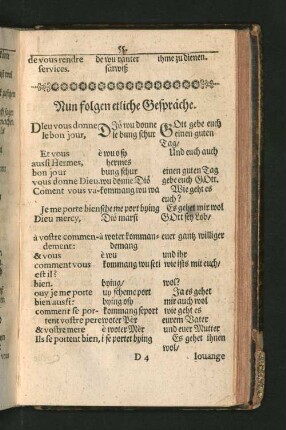 de vous rendre de wu ranter ihme zu dienen.
services. särwiß
Nun folgen etliche Gespräche.
DIeu vous donne DIö wu donne GOtt gebe euch
le bon jour, le bung schur einen guten
Tag/
Et vous è wu oß Und euch auch
aussi Hermes, hermes
bon jour bung schur einen guten Tag
vous donne Dieu. wu donne Diö gebe euch GOtt.
Coment vous va- kommang wu wa Wie geht es
euch?
Je me porte bien sche me port bying Es gehet mir wol
Dieu mercy, Diö marsi GOtt sey Lob/
à vostre commen- à woter komman- euer gantz williger
dement: demang
& vous è wu und ihr
comment vous kommang wu seti wie ists mit euch/
est il?
bien. bying/ wol?
ouy je me porte uy sche me port Ja es gehet
bien aussi: bying oß mir auch wol
comment se por- kommang se port wie geht es
tent vostre pere woter Pèr eurem Vater
& vostre mere è woter Mèr und eurer Mutter
Ils se portent bien, i se portet bying Es gehet ihnen
wol/
D 4 louange